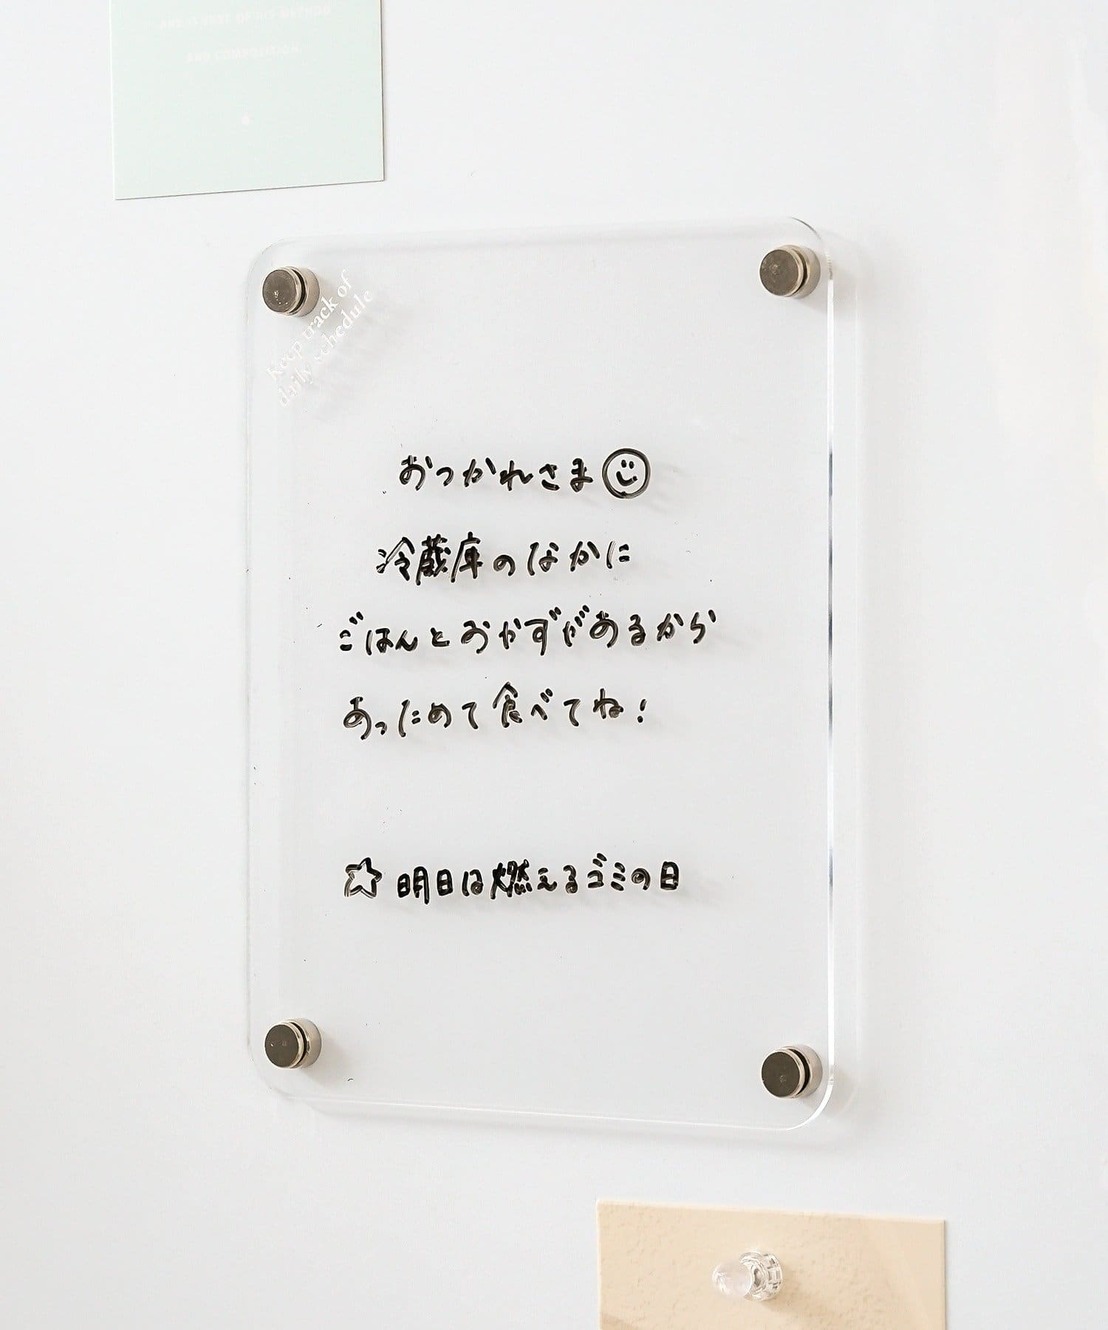 Keep track of
daily schedule
おつかれさま
冷蔵庫のなかに
ごはんとおかずがあるから
あっためて食べてね!
☆明日は燃えるゴミの日